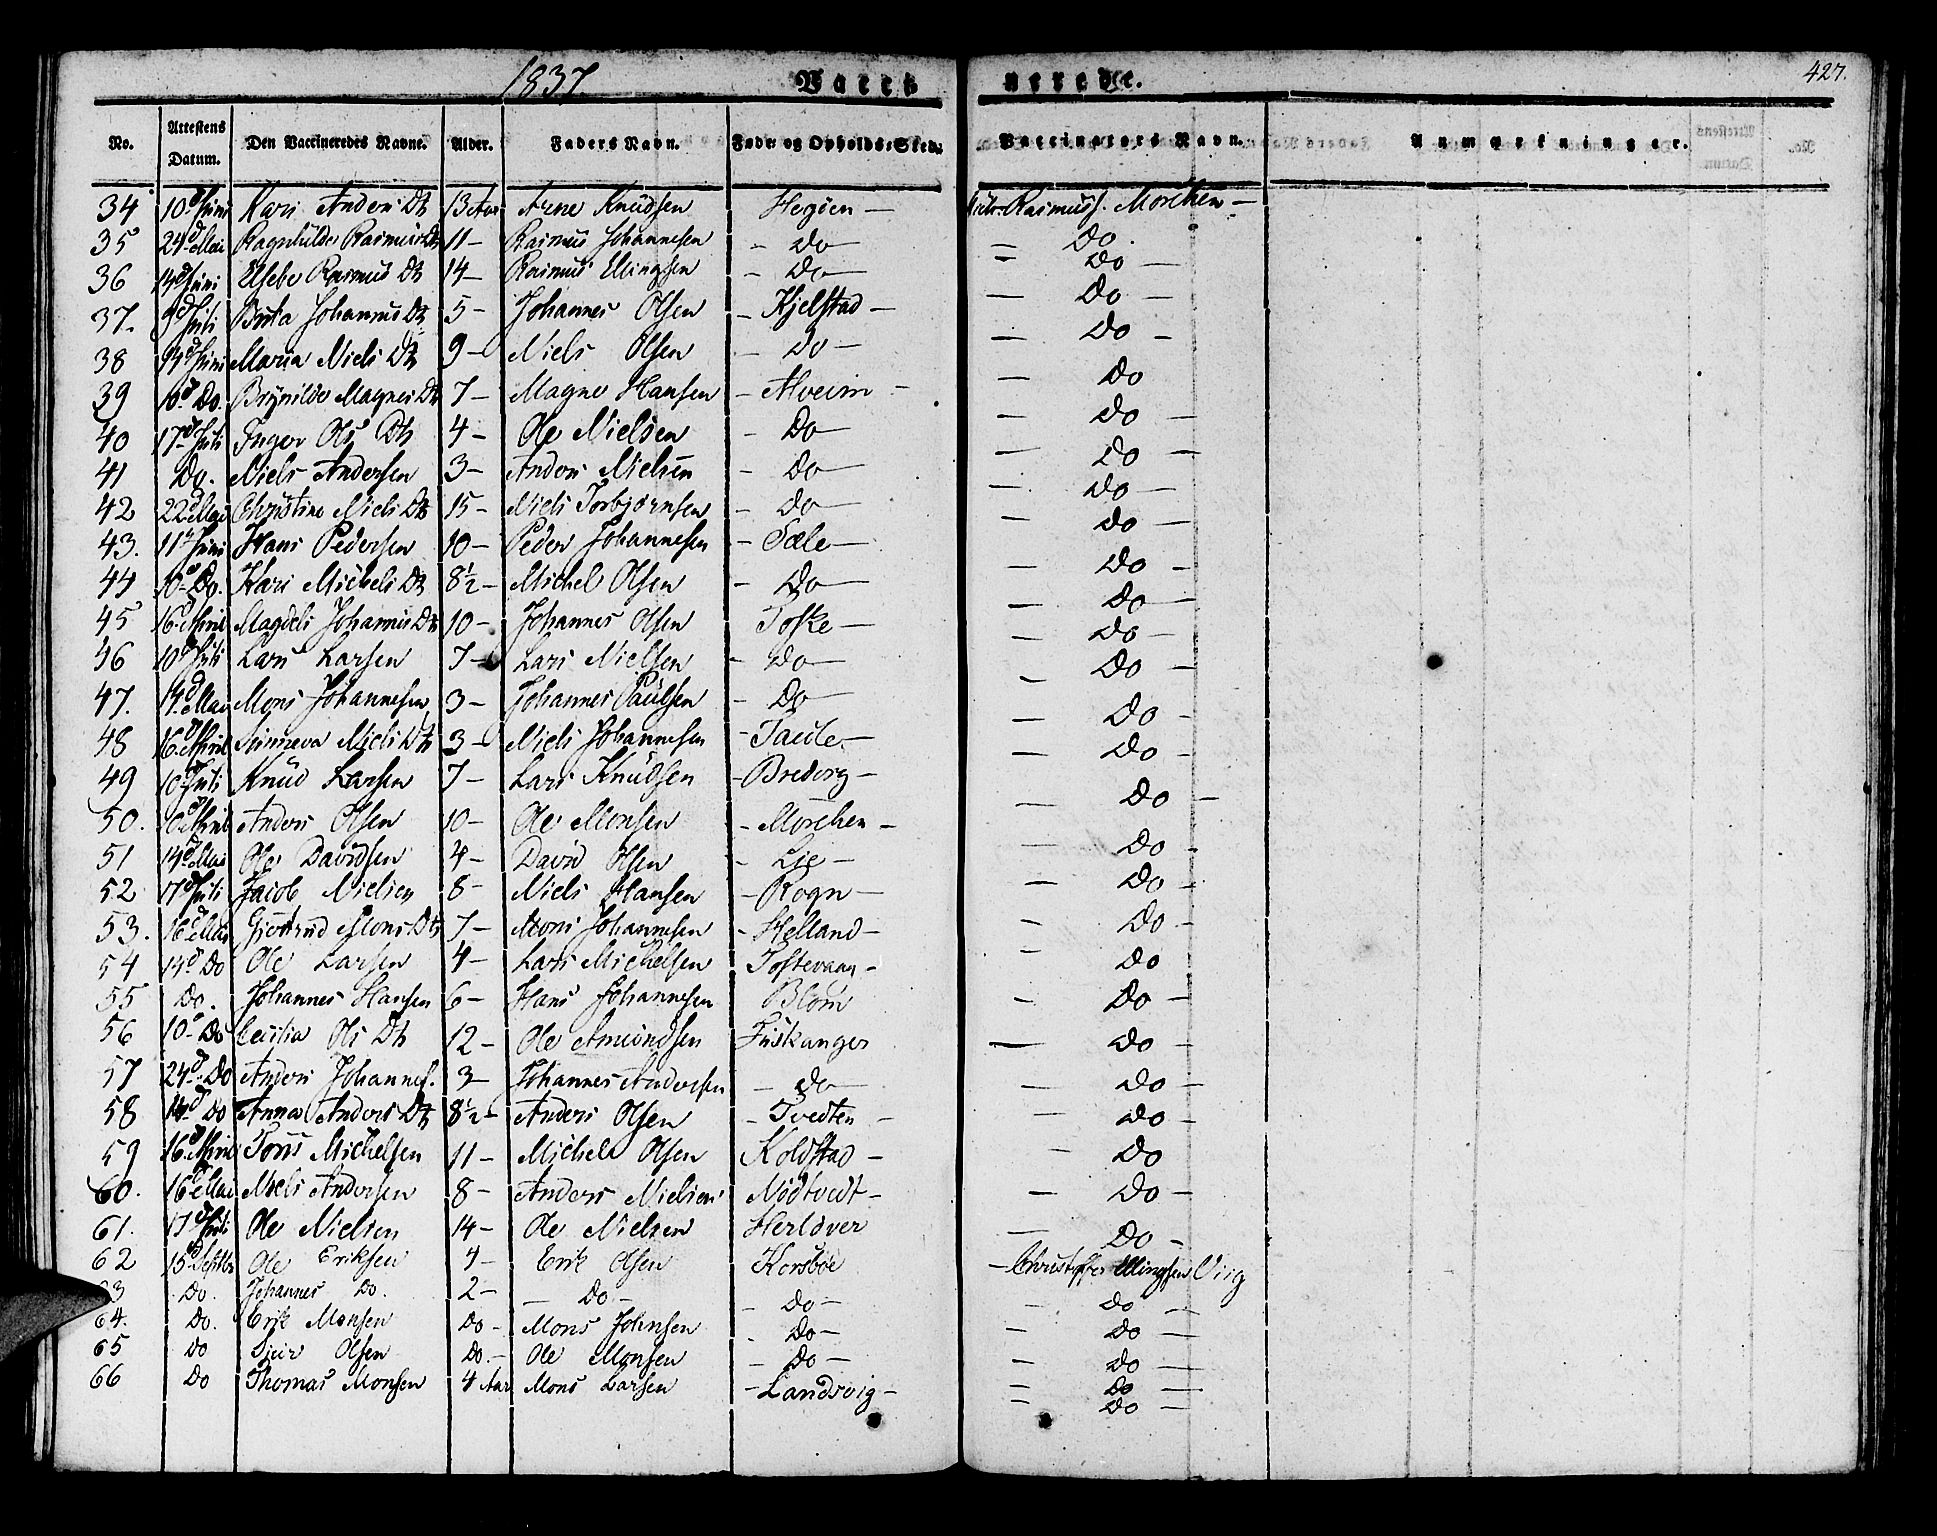 1837 Vacci nerede. 427.
No. Attestens Datum. Den Vaccineredes Navne. Alder. Faders Navn. Føde- og Opholds-Sted. Vaccinators Navn. Anmærkninger.
34 10d Juni Kari Anders Dt 13 Aar Arne Knudsen Hegøen — Rasmus J. Morchen —
35 24d Mai Ragnhilde Rasmus Dt 11 — Rasmus Johannesen — Do — — Do
36 14d Juni Elsebe Rasmus Dt 14 — Rasmus Ellingsen — Do — — Do —
37. 9d Juli Brita Johannis Dt 5 — Johannes Olsen — Kjelstad — — Do —
38 14d Juni Maria Niels Dt 9 — Niels Olsen — Do — — Do —
39 10d Do. Brynilde Magnes Dt 7 — Magne Hansen — Alveim — — Do
40 17d Juli Inger Ols Dt 4 — Ole Nielsen — Do — — Do —
41 Do. Niels Andersen 3 — Anders Nielsen — Do — — Do —
42 22d Mai Christine Niels Dt 15 — Niels Torbjørnsen — Do — — Do —
43. 11d Juni Hans Pedersen 10 — Peder Johannesen — Sæle — — Do —
44 10d Do. Kari Michels Dt 8½ — Michel Olsen — Do — — Do —
45 16d April Magdeli Johannis Dt 10 — Johannes Olsen Toske — — Do —
46 10d Juli Lars Larsen 7 — Lars Nielsen — Do — — Do —
47. 14d Mai Mons Johannesen 3 — Johannes Paulsen — Do — — Do —
48 16d April Sinneva Niels Dt 3 — Niels Johannesen — Taule — — Do —
49 10d Juli Knud Larsen 7 — Lars Knudsen — Bredvig — — Do —
50. 10d April Anders Olsen 10 — Ole Monsen — Morchen — — Do —
51 14d Mai Ole Davidsen 4 — David Olsen — Lie — — Do —
52 17d Juli Jacob Nielsen 8 — Niels Hansen — Rogn — — Do —
53. 16d Mai Giertrud Mons Dt 7 — Mons Johannesen — Helland — — Do —
54 14d Do Ole Larsen 4 — Lars Michelsen Toftevaag — — Do
55 Do. Johannes Hansen 6 — Hans Johannesen Blom — Do —
56 10d Do Cecilia Ols Dt 12 — Ole Amundsen Fuskanger — Do —
57 24d Do Anders Johannes. 3 — Johannes Andersen — Do — — Do —
58 14d Do Anna Anders Dt 8½ — Anders Olsen — Tvedten — — Do —
59 16d April Tøris Michelsen 11 — Michel Olsen Koldstad — — Do
60. 16d Mai Niels Andersen 8 — Anders Nielsen Nødtvedt — — Do —
61. 17d Juli Ole Nielsen 14 — Ole Nielsen Herldver — Do —
62 15d Septbr Ole Eriksen 4 — Erik Olsen Korsbøe — Christoffer Ellingsen Virg
63 Do. Johannes Do. 2 — — Do — — Do — — Do —
64. Do. Erik Monsen Do — Mons Johnsen — Do — — Do —
65 Do Sjur Olsen Do. — Ole Monsen — Do — — Do —
66 Do Thomas Monsen 4 Aar Mons Larsen — Landsvig — — Do —
— Do —